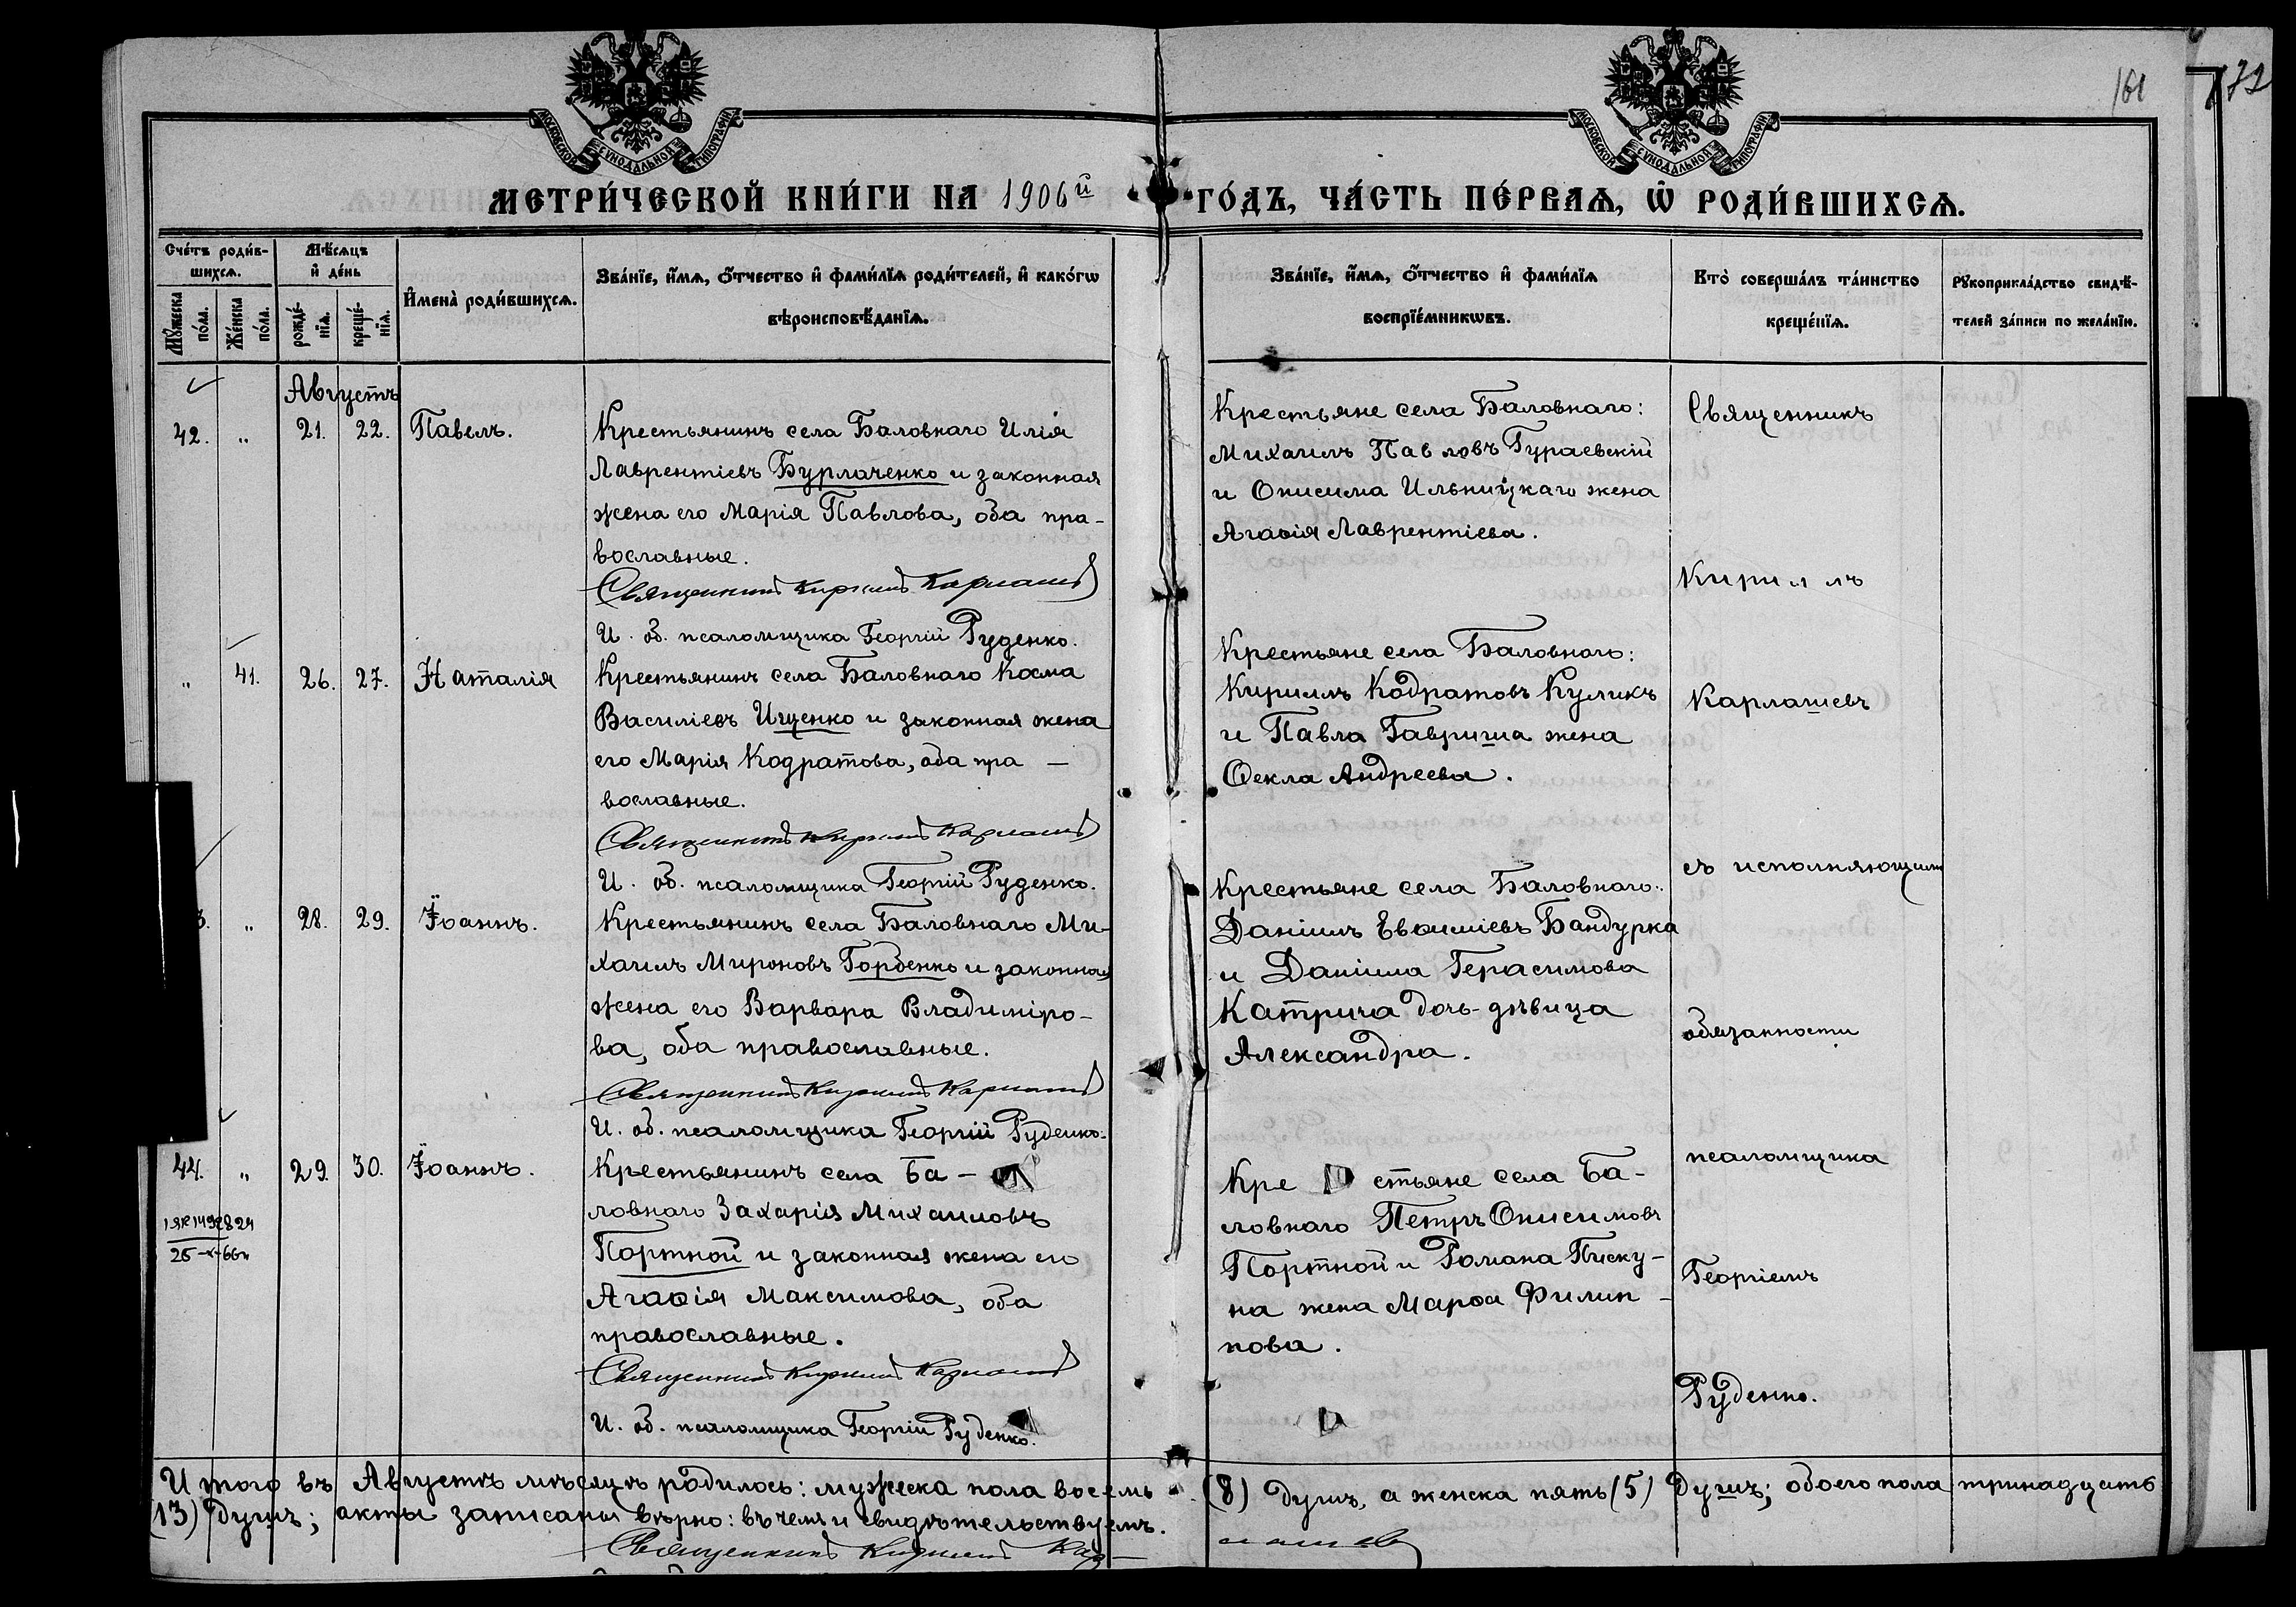 161
172
МОСКОВСКОЙ СѴНОДАЛЬНОЙ ТИПОГРАФІИ
МОСКОВСКОЙ СѴНОДАЛЬНОЙ ТИПОГРАФІИ
МЕТРИ́ЧЕСКОЙ КНИ́ГИ НА 1906й ГО́ДЪ, ЧА́СТЬ ПЕ́РВАѦ, Ѡ РОДИ́ВШИХСѦ.
Сче́тъ роди́в-
шихсѧ.
Мꙋ́жеска
по́ла.
Же́нска
по́ла.
Мѣ́сѧцъ
и҆ де́нь
рожде́-
нїѧ.
креще́-
нїѧ.
И҆мена̀ роди́вшихсѧ.
Зва́нїе, и҆́мѧ, ѻ҆́тчество и҆ фами́лїѧ роди́телей, и҆ како́гѡ
вѣроисповѣ́данїѧ.
Зва́нїе, и҆́мѧ, ѻ҆́тчество и҆ фами́лїѧ
воспрїе́мникѡвъ.
Кто̀ соверша́лъ та́инство
креще́нїѧ.
Рꙋкоприкла́дство свидѣ́-
телей за́писи по жела́нїю.
Августъ
42. " 21. 22. Павелъ.
Крестьянинъ села Баловнаго Илія
Лаврентіевъ Бурлаченко и законная
жена его Марія Павлова, оба пра-
вославные.
Священникъ Кириллъ Карлашевъ
И. об. псаломщика Георгій Руденко.
Крестьяне села Баловнаго:
Михаилъ Павловъ Гураевскій
и Онисима Ильницкаго жена
Агаѳія Лаврентіева.
" 41. 26. 27. Наталія
Крестьянинъ села Баловнаго Косма
Василіевъ Ищенко и законная жена
его Марія Кодратова, оба пра-
вославные.
Священникъ Кириллъ Карлашевъ
И. об. псаломщика Георгій Руденко.
Крестьяне села Баловнаго:
Кириллъ Кодратовъ Куликъ
и Павла Гавриша жена
Ѳекла Андреева.
3. " 28. 29. Іоаннъ.
Крестьянинъ села Баловнаго Ми-
хаилъ Мироновъ Горбенко и законная
жена его Варвара Владиміро-
ва, оба православные.
Священникъ Кириллъ Карлашевъ
И. об. псаломщика Георгій Руденко.
Крестьяне села Баловнаго:
Даніилъ Евѳиміевъ Бандурка
и Даніила Герасимова
Катрича дочь-дѣвица
Александра.
44. " 29. 30. Іоаннъ.
Крестьянинъ села Ба-
ловнаго Захарія Михаиловъ
Портной и законная жена его
Агаѳія Максимова, оба
православные.
Священникъ Кириллъ Карлашевъ
И. об. псаломщика Георгій Руденко.
Крестьяне села Ба-
ловнаго Петръ Онисимовъ
Портной и Романа Писку-
на жена Марѳа Филип-
пова.
Священникъ
Кириллъ
Карлашевъ
съ исполняющимъ
обязанности
псаломщика
Георгіемъ
Руденко.
Итого въ Августѣ мѣсяцѣ родилось: мужеска пола восемь (8) душъ, а женска пять (5) душъ; обоего пола тринадцать
(13) душъ; акты записаны вѣрно: въ чемъ и свидѣтельствуемъ.
Священникъ Кириллъ Карлашевъ